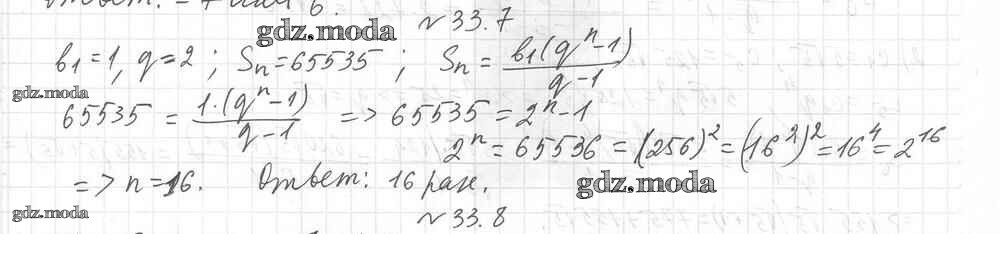 Ответ: -7 или 6.
№ 33.7
gdz.moda
b₁ = 1, q = 2 ; Sₙ = 65535 ; Sₙ = b₁(qⁿ-1) / q-1
gdz.moda
65535 = 1·(qⁿ-1) / q-1 => 65535 = 2ⁿ-1
2ⁿ = 65536 = (256)² = (16²)² = 16⁴ = 2¹⁶
=> n = 16. Ответ: 16 раз.
gdz.moda
gdz.moda
№ 33.8